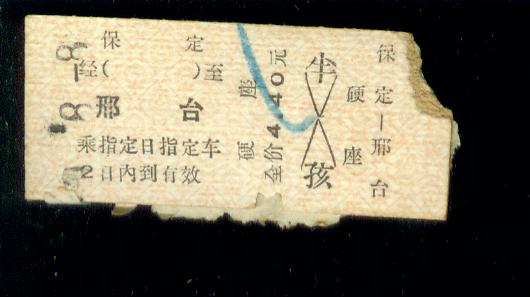 保 定
经( )至
邢 台
乘指定日指定车
2日内到有效
硬 座
全价4.40元
半
孩
保定—邢台
硬座